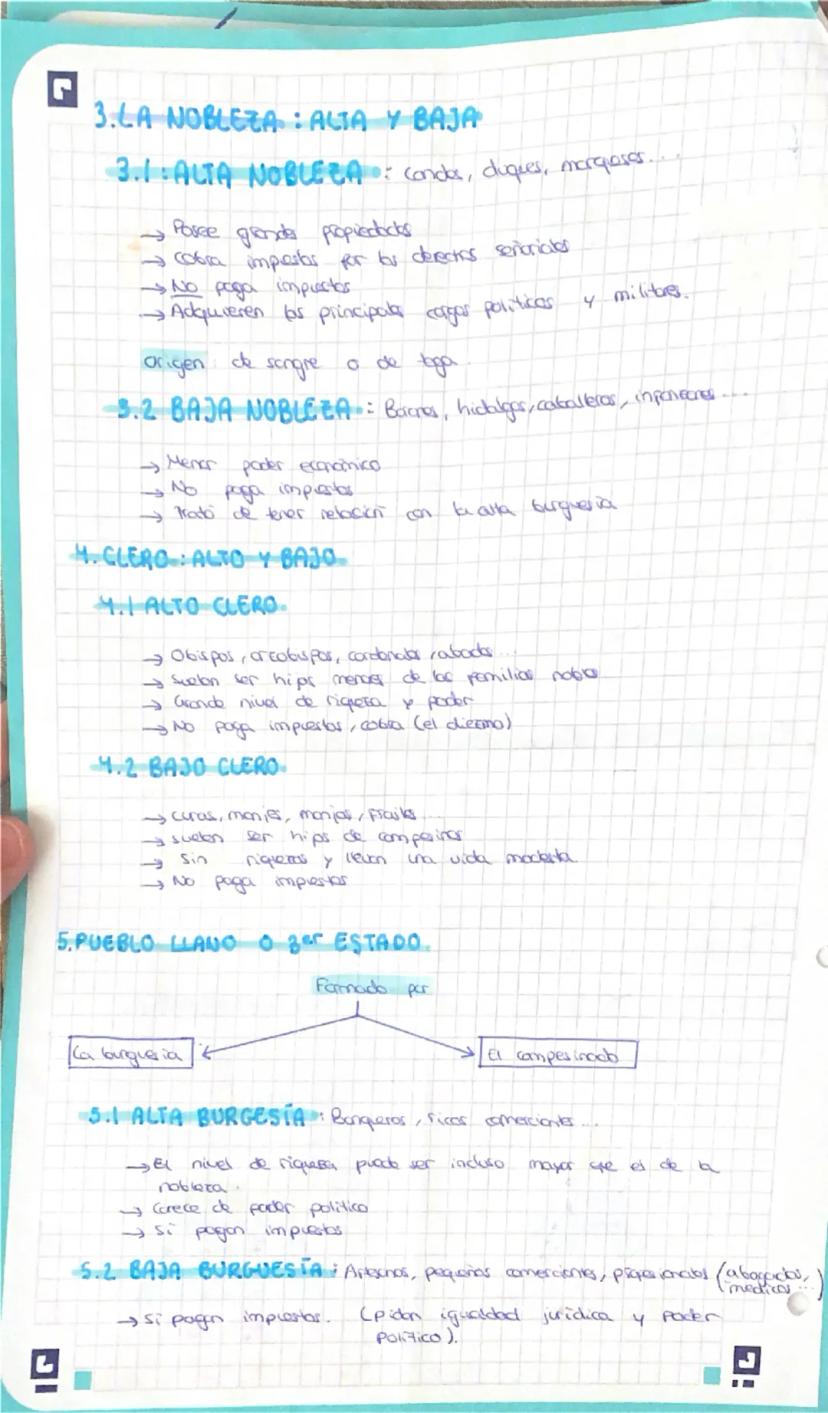 3.LA NOBLEZA : ALTA Y BAJA
3.1 : ALTA NOBLEZA : condes, duques, marqueses...
→ Posee grandes propiedades
→ Cobra impuestos por los derechos señoriales
→ No paga impuestos
→ Adquieren los principales cargos políticos y militares.
origen de sangre o de toga.
3.2 BAJA NOBLEZA : Barones, hidalgos, caballeros, infanzones...
→ Menor poder económico
→ No paga impuestos
→ Trató de tener relación con la alta burguesía
4. CLERO : ALTO Y BAJO
4.1 ALTO CLERO
→ Obispos, arzobispos, cardenales, abades...
→ Suelen ser hijos menores de las familias nobles
→ Grande nivel de riqueza y poder
→ No paga impuestos, cobra (el diezmo)
4.2 BAJO CLERO
→ curas, monjes, monjas, frailes...
→ suelen ser hijos de campesinos
→ Sin riquezas y llevan una vida modesta
→ No paga impuestos
5.PUEBLO LLANO O 3er ESTADO.
Formado por
La burguesía
El campesinado
5.1 ALTA BURGESÍA : Banqueros, ricos comerciantes...
→ El nivel de riqueza puede ser incluso mayor que el de la
nobleza.
→ Carece de poder político
→ Sí pagan impuestos
5.2 BAJA BURGUESÍA : Artesanos, pequeños comerciantes, profesionales (abogados,
médicos...)
→ Sí pagan impuestos. (piden igualdad jurídica y poder
político).